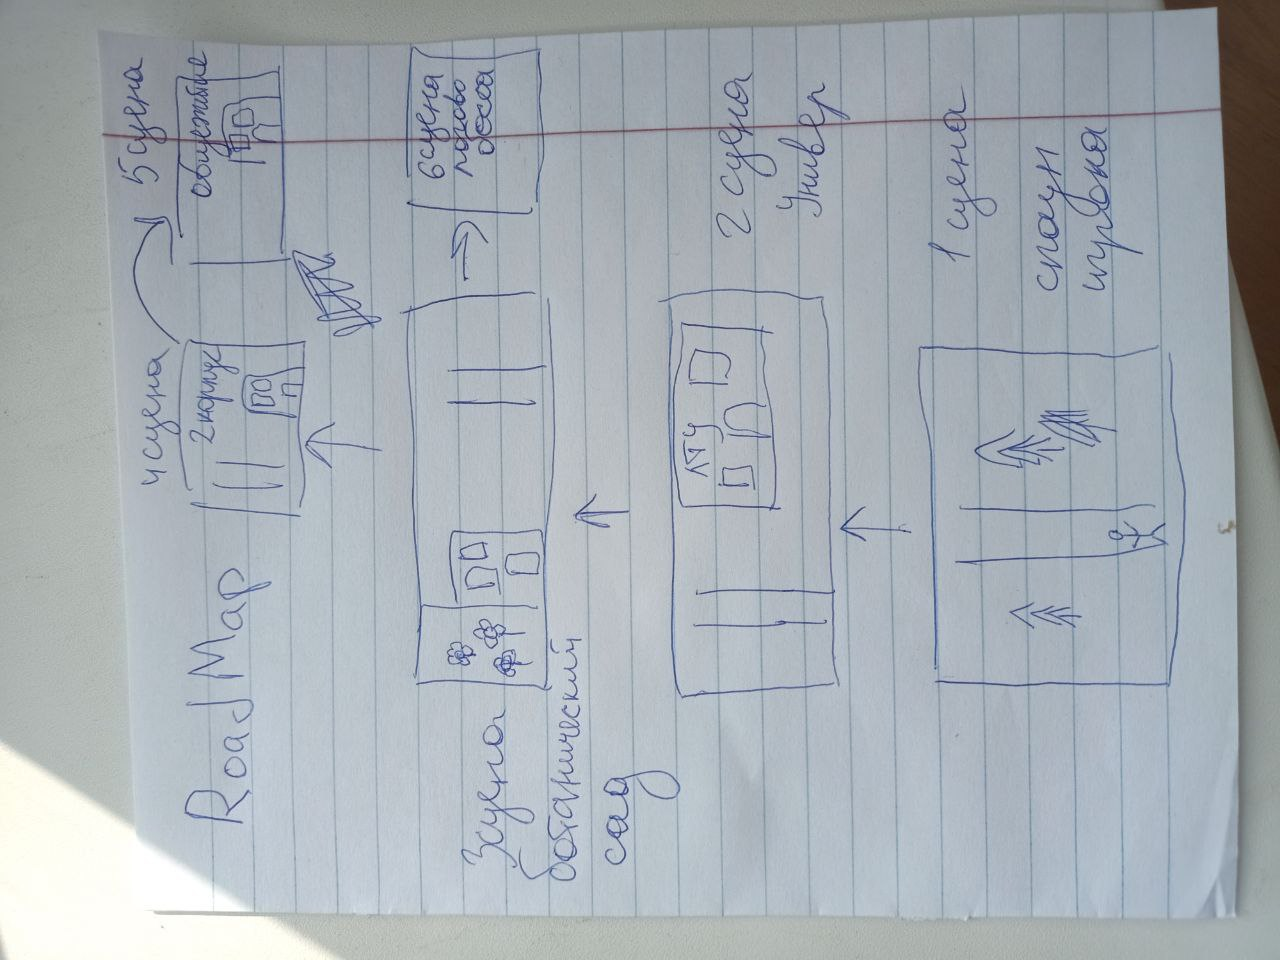 Road Map
4 сцена
2 корпус
5 сцена
общежитие
3 сцена
ботанический
сад
6 сцена
логово
босса
2 сцена
Универ
ЛТУ
1 сцена
спаун
игрока